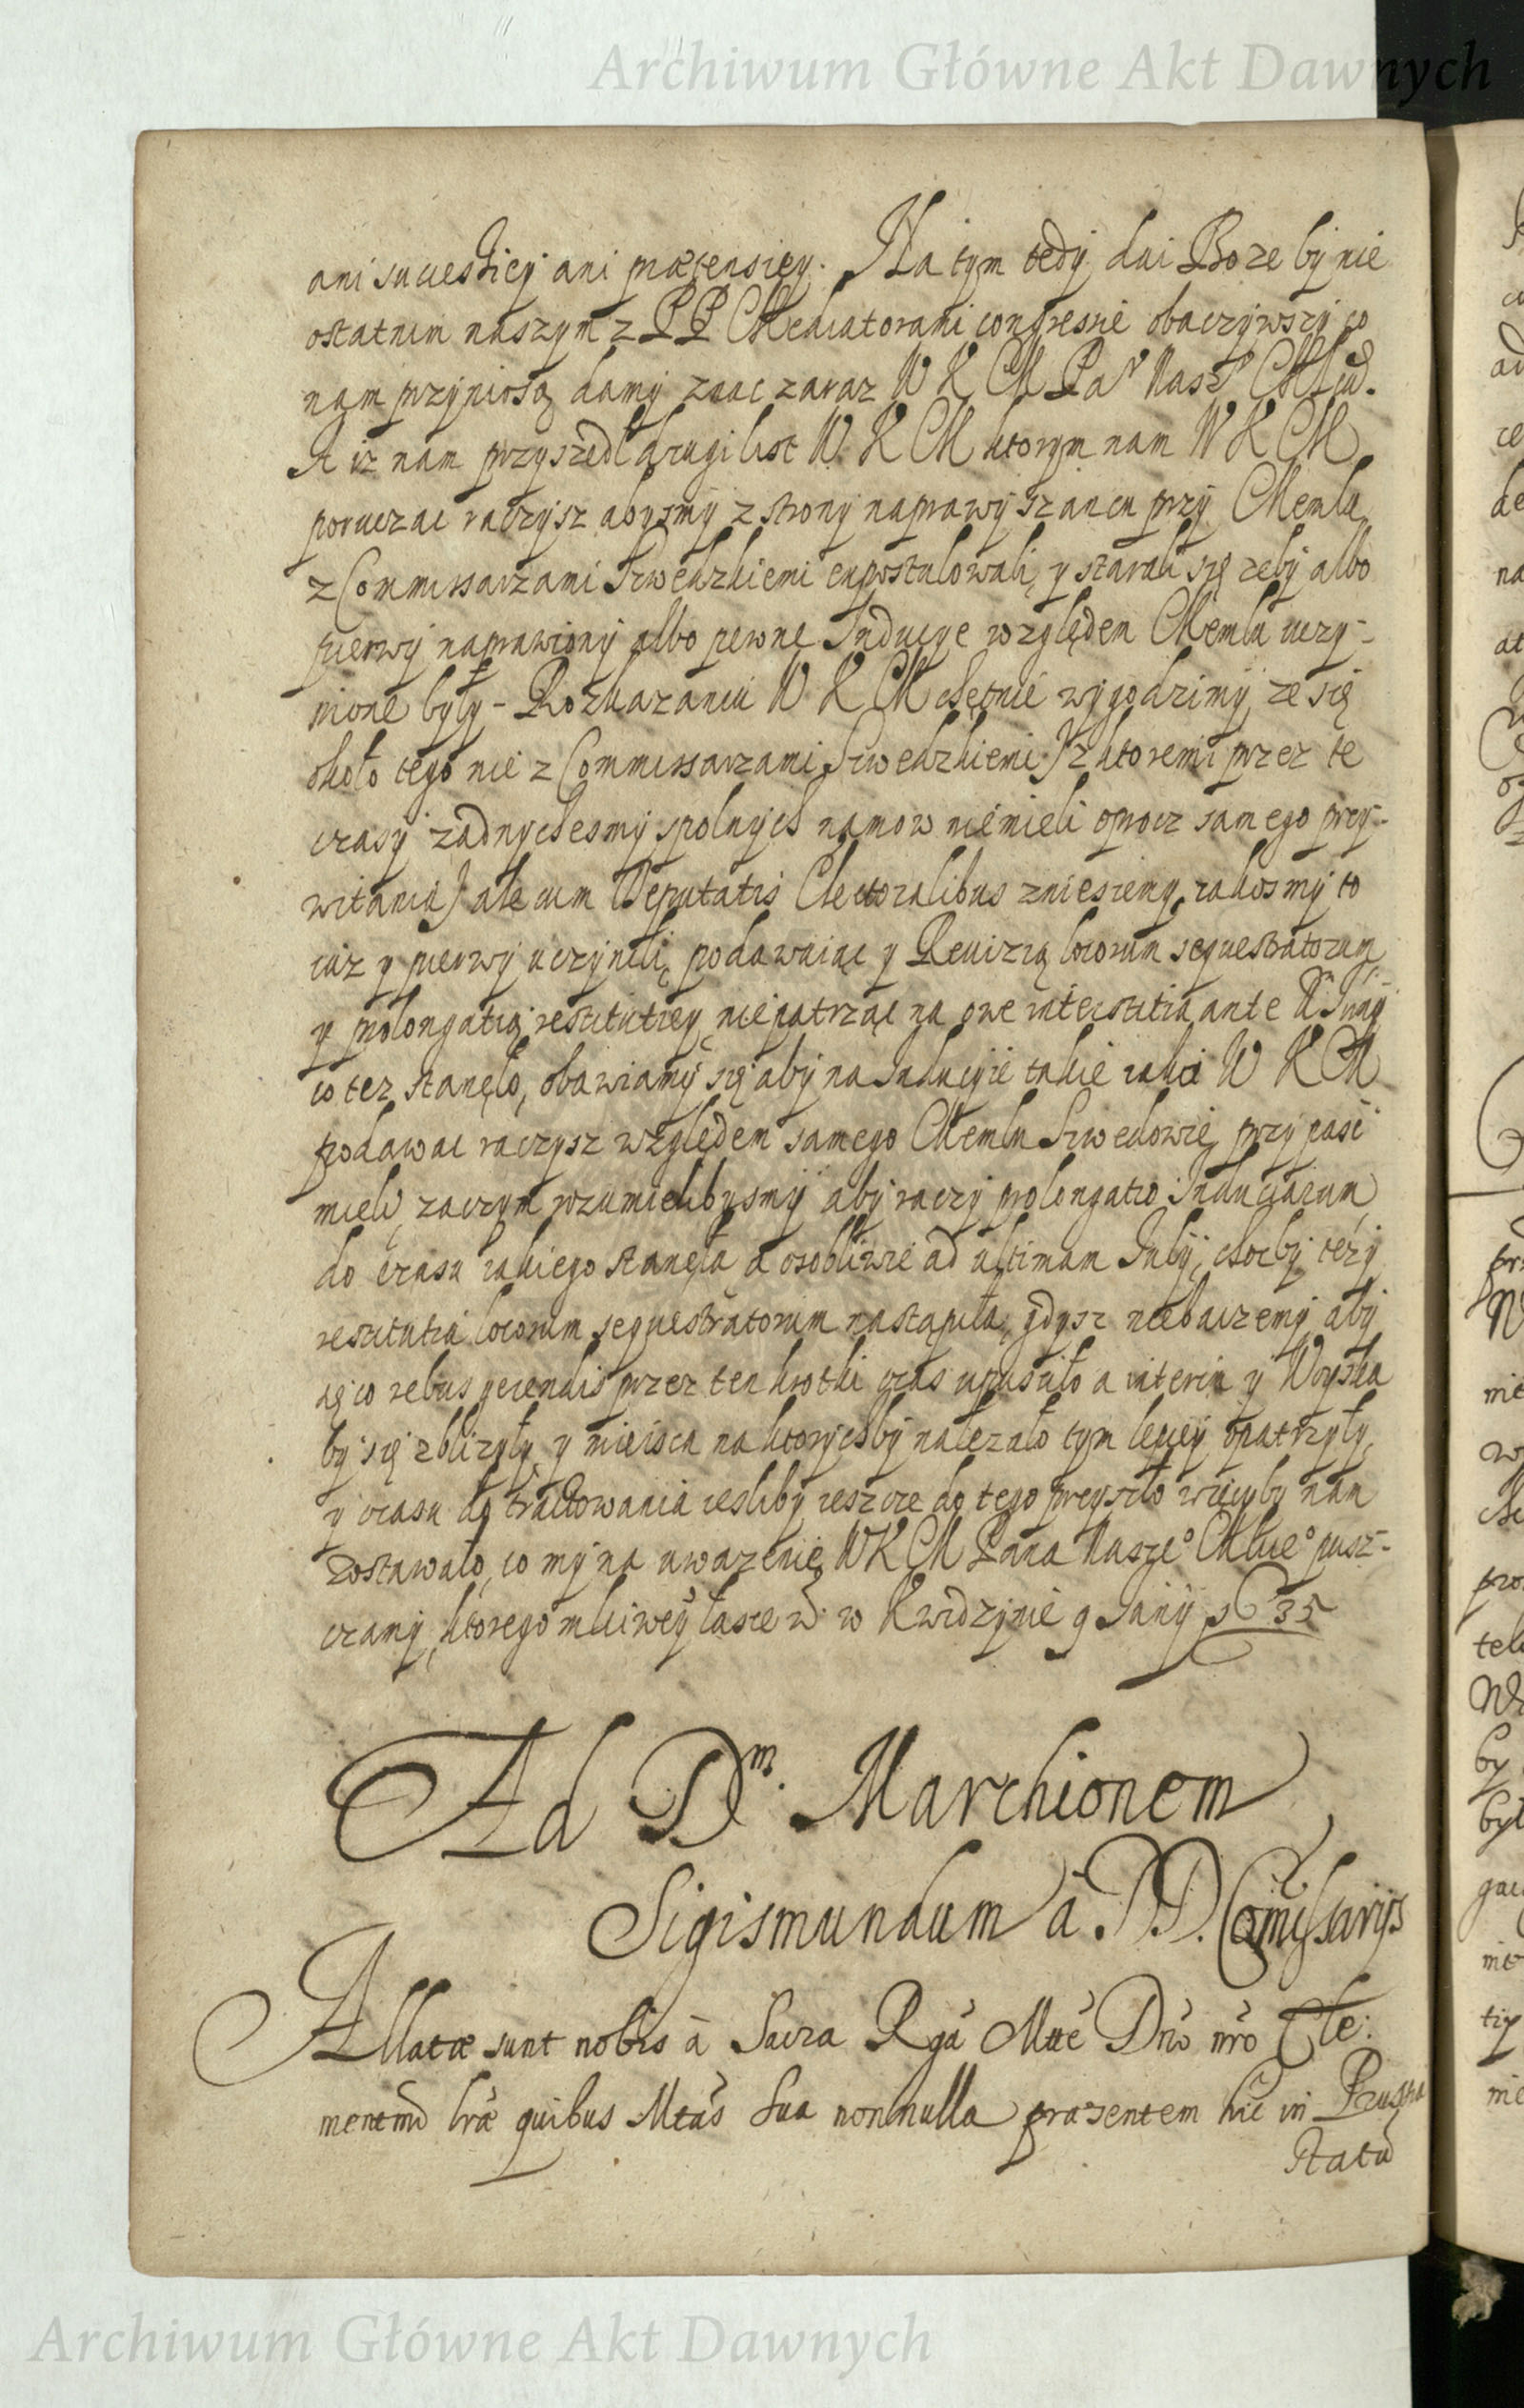 Archiwum Główne Akt Dawnych
ani successiey ani prætensiey. Na tym tedy dai Boze by nie
ostatnim naszym z PP Mediatorami congressie obaczywszy co
nam przyniosą damy znac zaraz W K M Pa Nasz Mciw.
A iz nam przyszedl drugi list W. K M ktorym nam W K M
poruczac raczysz abysmy z strony naprawy szancu przy Memlu
z Commissarzami Szwedzkiemi expostulowali, y starali się zeby albo
pierwy naprawiony albo pewne Inducye względem Memlu uczy-
nione były - Rozkazaniu W K M chętnie wygodzimy, ze się
około tego nie z Commissarzami Szwedzkiemi (z ktoremi przez te
czasy zadnychesmy spolnych namow nie mieli oprocz samego przy-
witania) ale cum Deputatis Electoralibus zniesiemy, iakosmy to
iuz y pierwy uczynili, podawaiąc y Rewizią locorum sequestratorum
y prolongatią restitutiey, niepatrząc na owe interstitia ante
co tez stanęło, obawiamy się aby na Inducyie takie iakie W K M
podawac raczysz względem samego Memlu Szwedowie przypasc
mieli, zaczym rozumielibysmy aby raczy prolongatio Induciarum
do czasu iakiego stanęła a osobliwie ad ultimam Iulij, chocby tezy
restitutia locorum sequestratorum nastąpiła, gdysz niebaczemy aby
się co rebus gerendis przez ten krotki czas upusciło a interim y Woyska
by się zblizyły, y mieisca na ktorychby nalezało tym lepiey opatrzyły,
y czasu do tractowania iesliby ieszcze do tego przyszło więcyby nam
zostawało, co my na uwazenie W K M Pana Nasze° Mciwe° pusz-
czamy, ktorego mciwey łasce w Kwidzynie 9 Iunij 1635
Ad Dm. Marchionem
Sigismundum a DD. Comissarijs
Allatæ sunt nobis à Sacra Rga Mtte Dno nro Cle:
mentmo lræ quibus Mtas Sua nonnulla præsentem hic in Prussia
Statū
Archiwum Główne Akt Dawnych